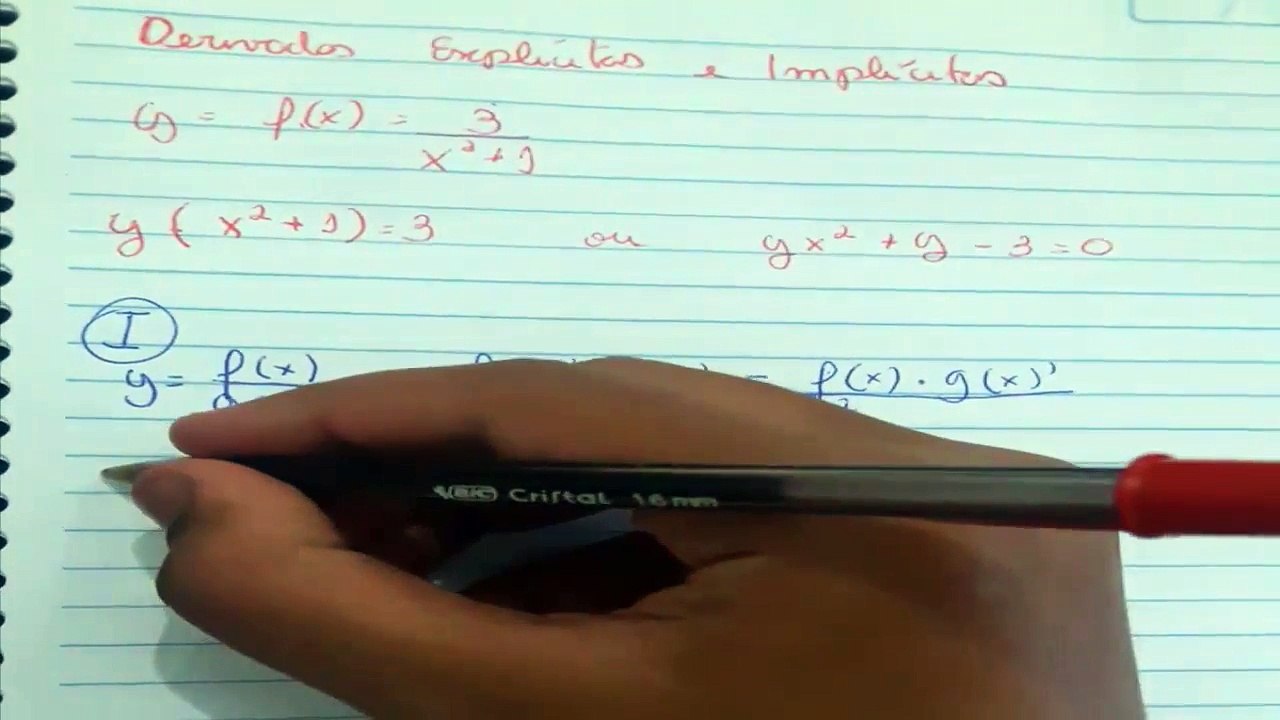 Derivadas Explícitas e Implícitas
y = f(x) = 3 / x² + 1
y ( x² + 1 ) = 3 ou yx² + y - 3 = 0
I
y = f(x) = f(x) · g(x)'
BIC Cristal 1.6mm